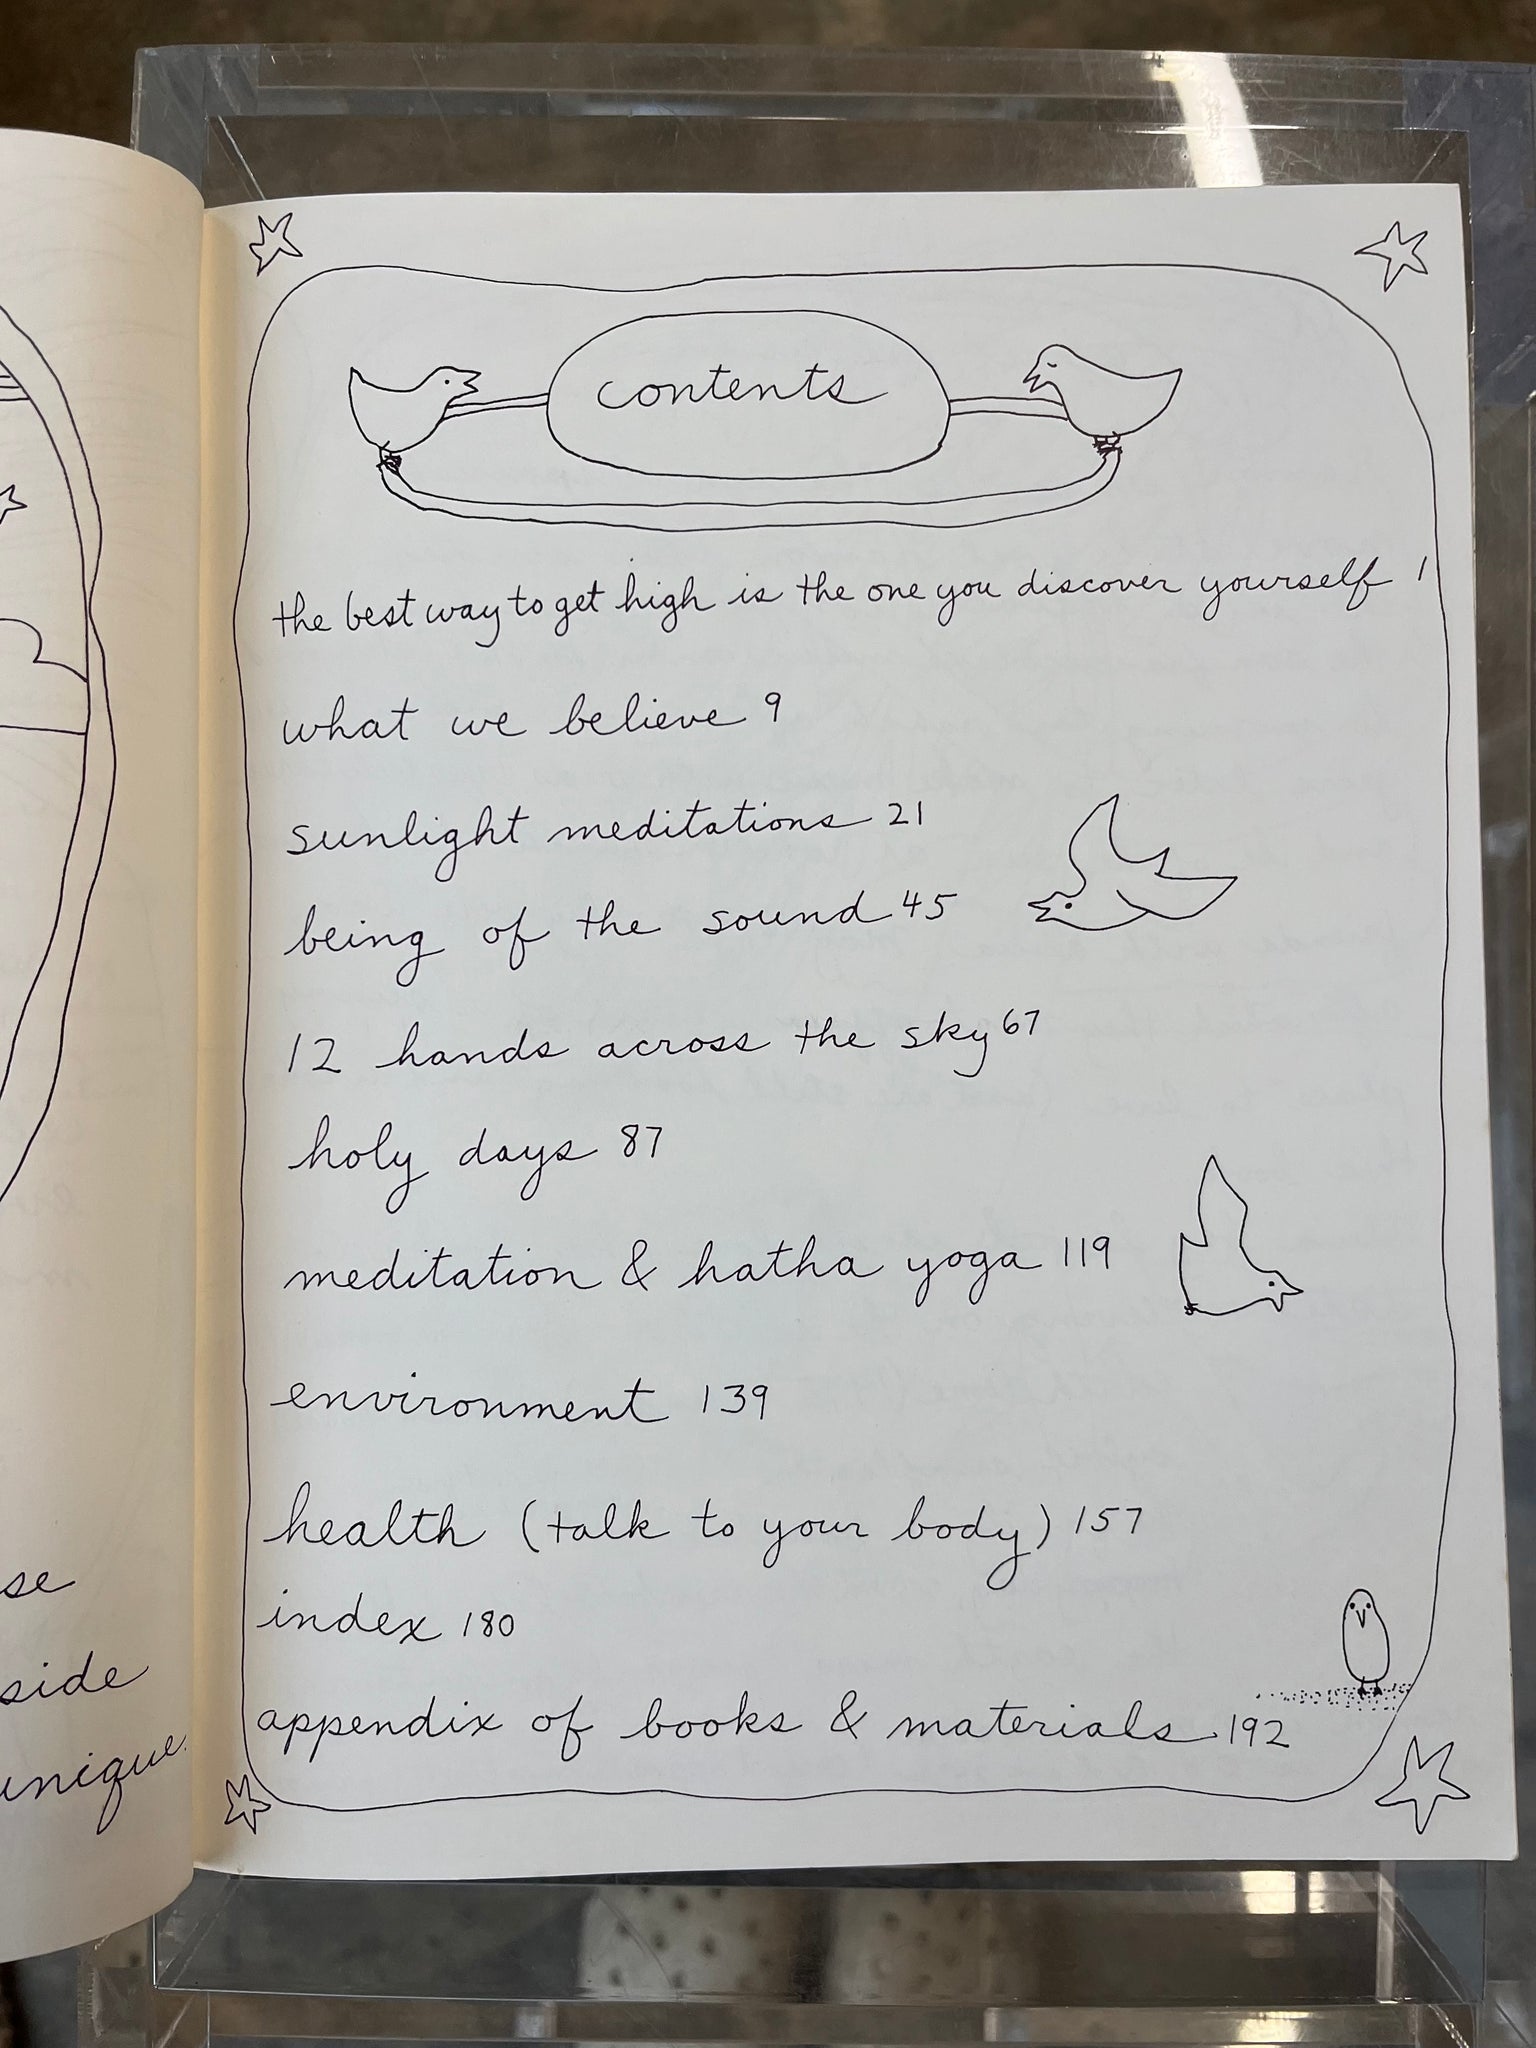 se
side
unique.
contents
the best way to get high is the one you discover yourself 1
what we believe 9
sunlight meditations 21
being of the sound 45
12 hands across the sky 67
holy days 87
meditation & hatha yoga 119
environment 139
health (talk to your body) 157
index 180
appendix of books & materials 192